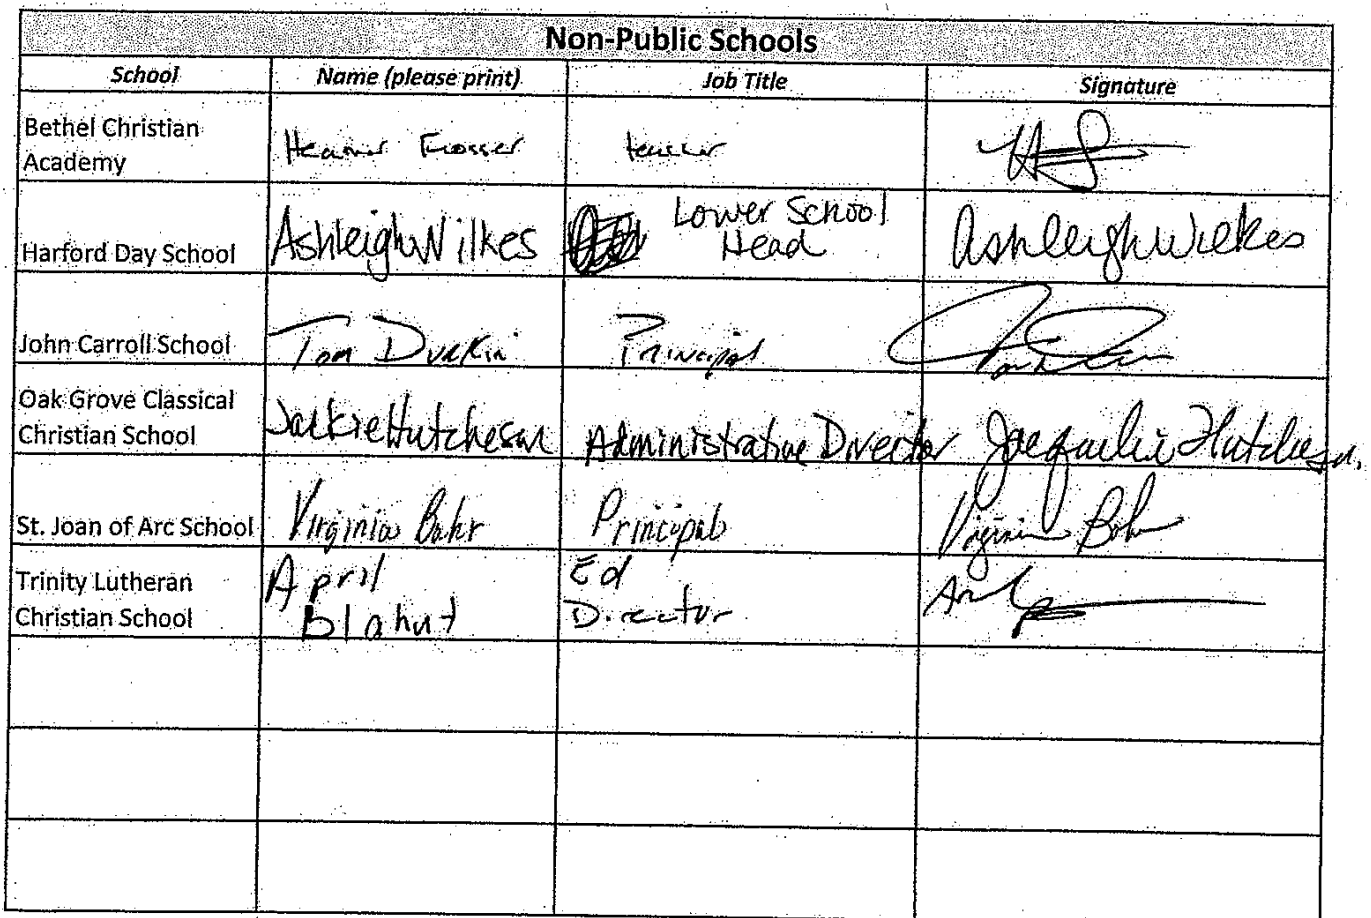 Non-Public Schools
School Name (please print) Job Title Signature
Bethel Christian
Academy
Heather teacher
Harford Day School Ashleigh Wilkes Lower School
Head Ashleigh Wilkes
John Carroll School Tom Durkin Principal
Oak Grove Classical
Christian School Jackie Hutcheson Administrative Director Jacqueline Hutcheson
St. Joan of Arc School Virginia Bahr Principal Virginia Bahr
Trinity Lutheran April Ed
Christian School Blahut Director